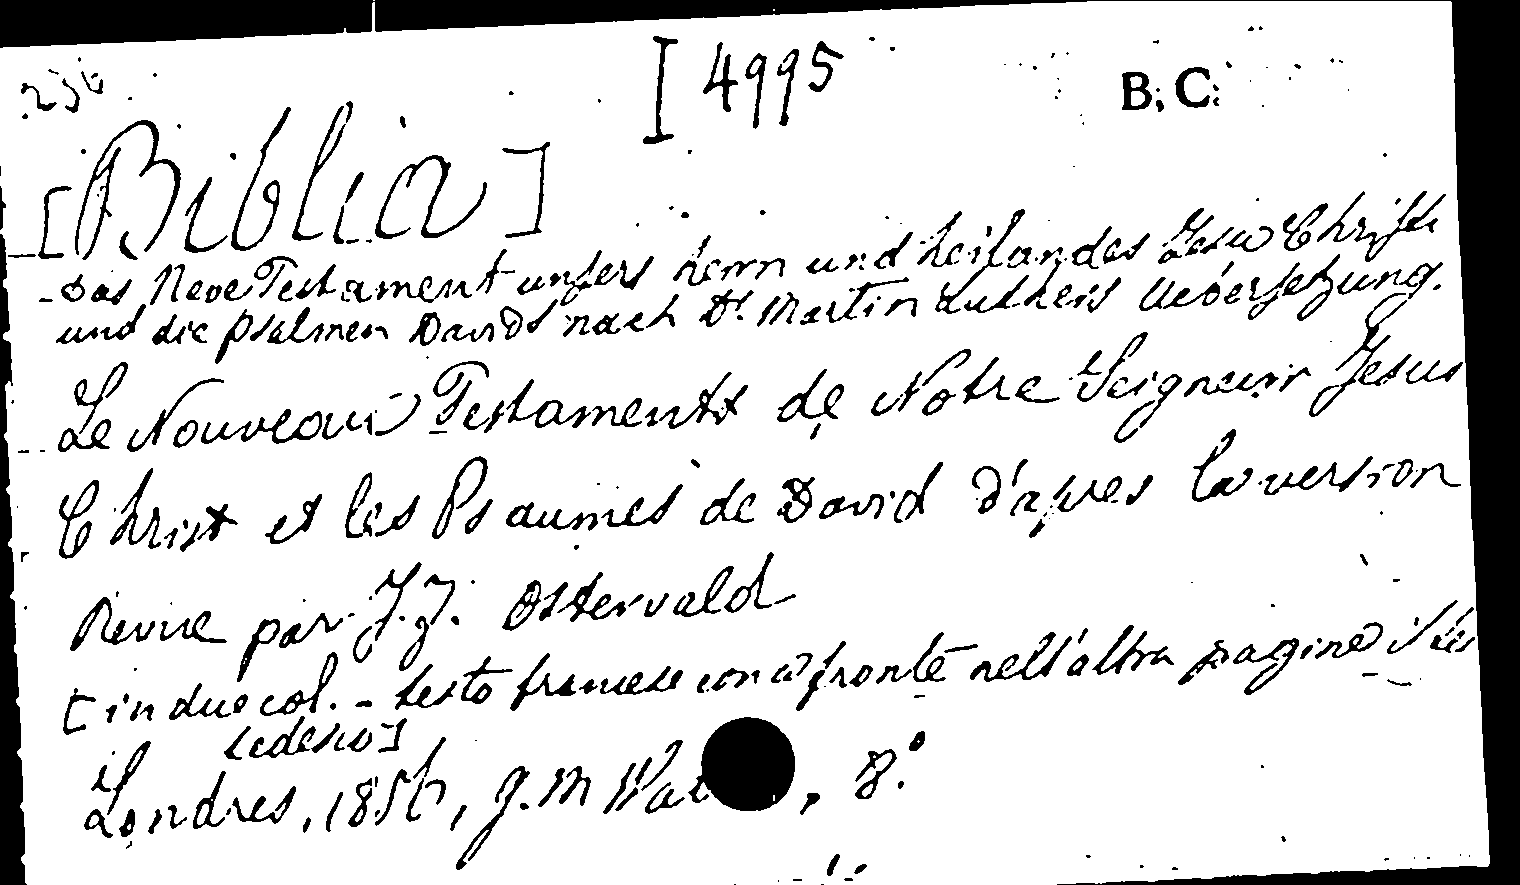 236
I 4995
B. C.
[Biblia]
- Das Neue Testament unsers herrn und heilandes Jesu Christi
und die psalmen Davids nach Dr. Martin Luthers Uebersetzung.
Le Nouveau Testament de Notre Seigneur Jesus
Christ et les Psaumes de David d'apres la version
Revue par J.J. Ostervald
[in due col. - testo francese con a fronte nell'altra pagine il tes
tedesco]
Londres, 1856, J. M Wat , 8.°